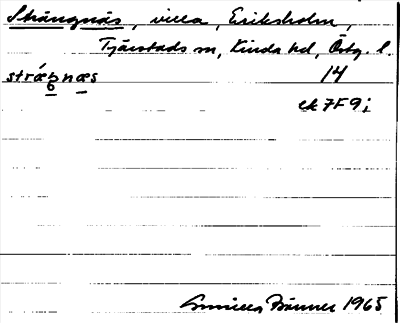 Strängnäs, villa, Eriksholm,
Tjärstads sn, Kinda hd, Östg. l.
strǽŋnæs 14
6
ek 7F9j
Gunilla Bänner 1965